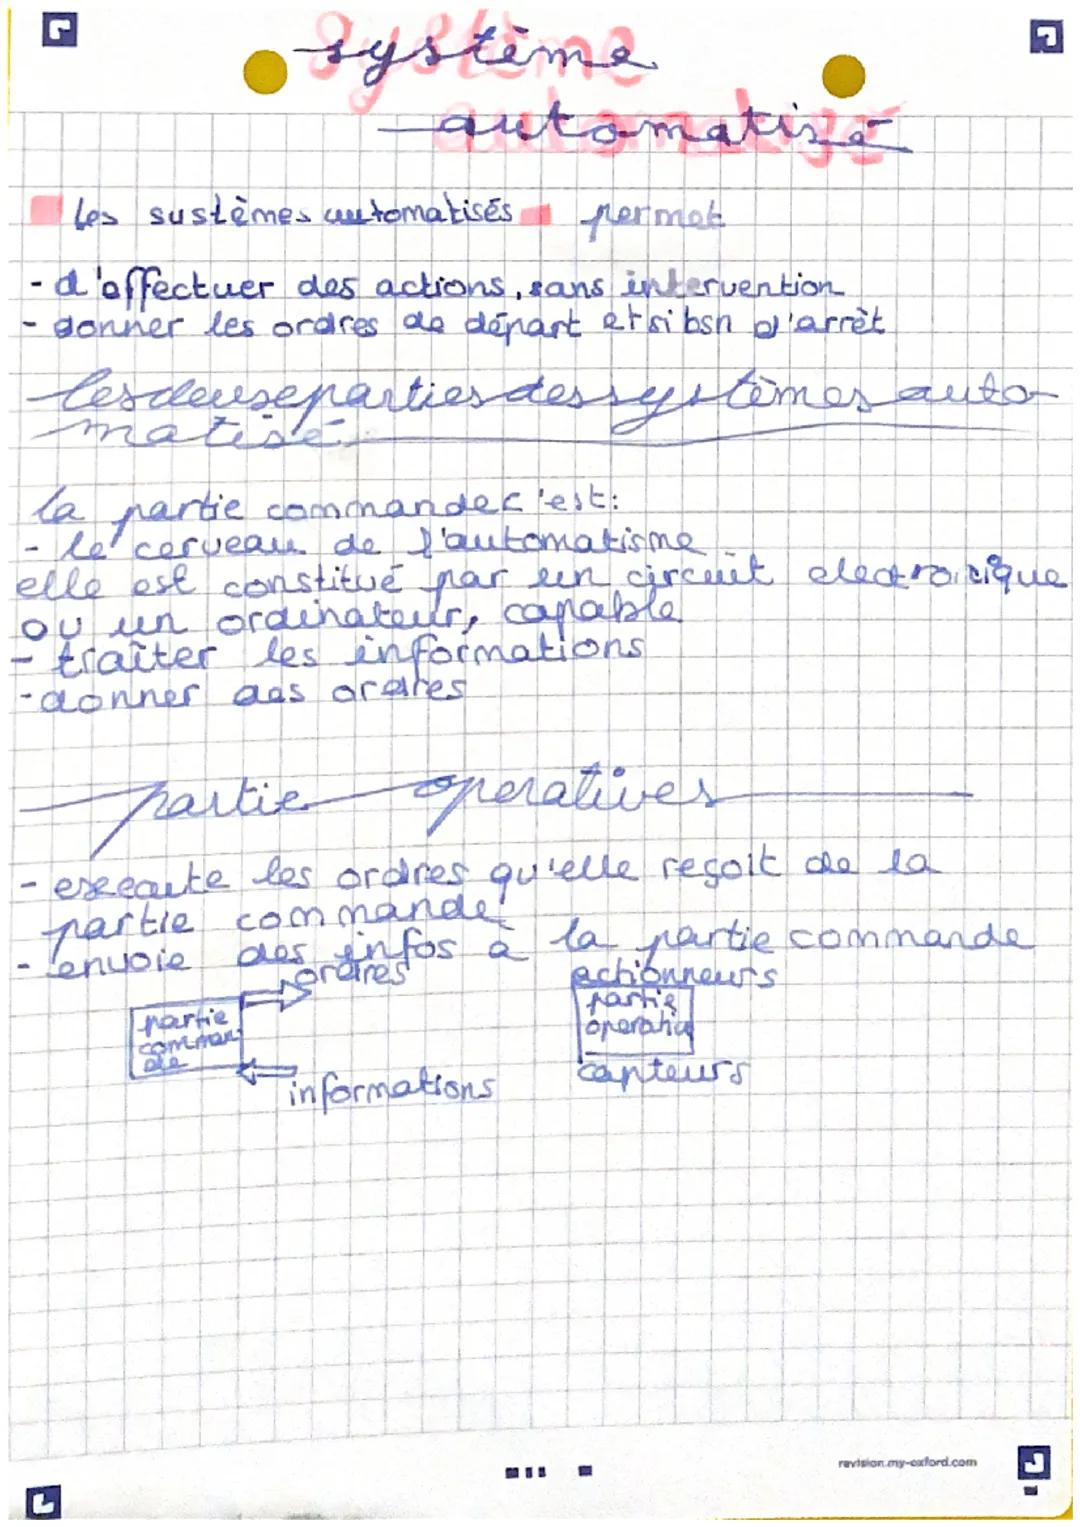 système
automatisé
les sustèmes automatisés permet
- d'effectuer des actions, sans intervention
- donner les ordres de départ et si bsn d'arrêt
les deuse parties des systèmes auto-
matisé
la partie commandec'est:
- le cerveau de l'automatisme
elle est constitué par un circuit electronique
ou un ordinateur, capable
- traîter les informations
- donner des ordres
partie operatives
- exécute les ordres qu'elle reçoit de la
partie commande
- envoie des infos à la partie commande
ordres actionneurs
partie partie
comman operativ
de
informations capteurs
revision.my-oxford.com